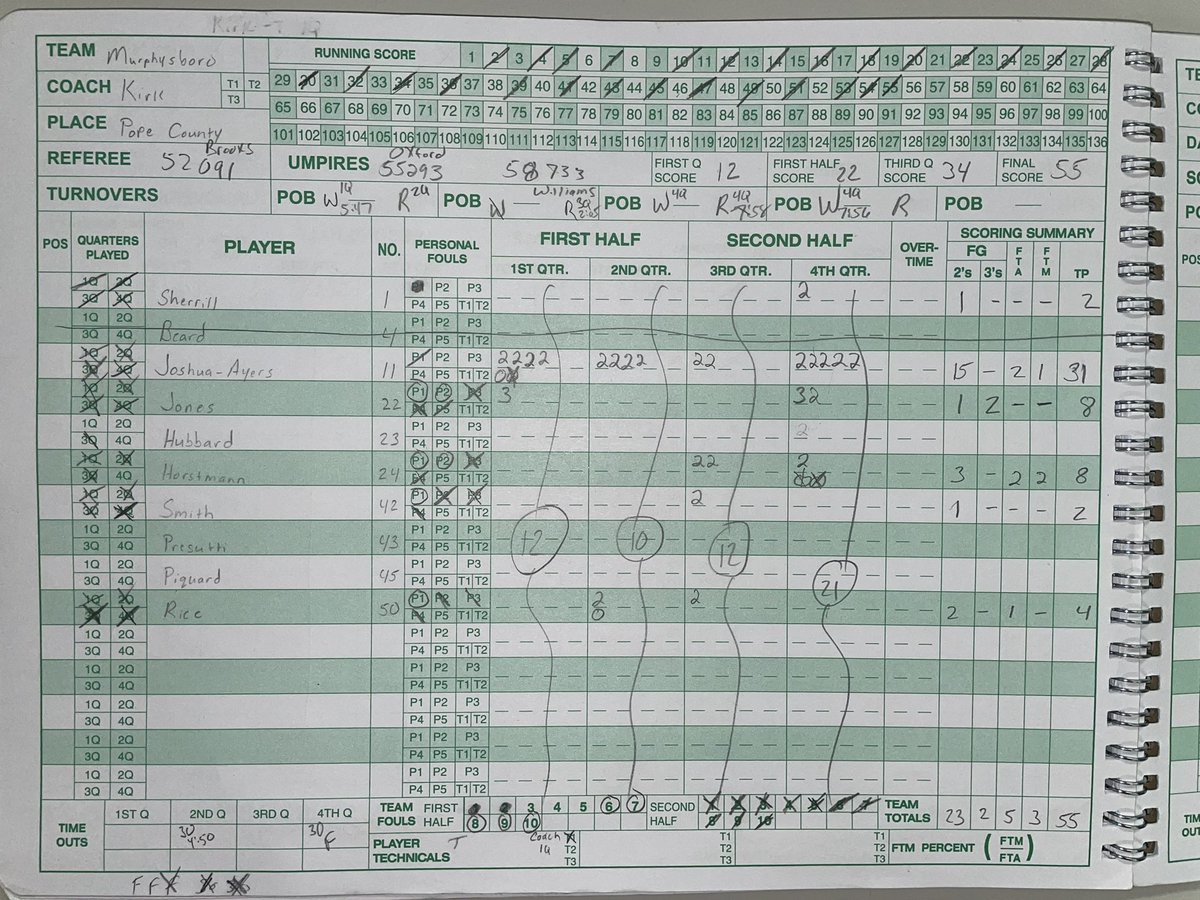 Kirk-T 1Q
TEAM Murphysboro RUNNING SCORE 1 2 3 4 5 6 7 8 9 10 11 12 13 14 15 16 17 18 19 20 21 22 23 24 25 26 27 28
COACH Kirk T1 T2 T3 29 30 31 32 33 34 35 36 37 38 39 40 41 42 43 44 45 46 47 48 49 50 51 52 53 54 55 56 57 58 59 60 61 62 63 64
PLACE Pope County 65 66 67 68 69 70 71 72 73 74 75 76 77 78 79 80 81 82 83 84 85 86 87 88 89 90 91 92 93 94 95 96 97 98 99 100
101 102 103 104 105 106 107 108 109 110 111 112 113 114 115 116 117 118 119 120 121 122 123 124 125 126 127 128 129 130 131 132 133 134 135 136
REFEREE Brooks 52091 UMPIRES Oxford 55293 58733 FIRST Q SCORE 12 FIRST HALF SCORE 22 THIRD Q SCORE 34 FINAL SCORE 55
TURNOVERS POB W 1Q 5:47 R 2Q POB W — Williams R 3Q 2:05 POB W 4Q — R 4Q 7:58 POB W 4Q 7:56 R POB —
POS QUARTERS PLAYED PLAYER NO. PERSONAL FOULS FIRST HALF SECOND HALF OVER-TIME SCORING SUMMARY
1ST QTR. 2ND QTR. 3RD QTR. 4TH QTR. FG 2's 3's FTA FTM TP
1Q 2Q 3Q 4Q Sherrill 1 P2 P3 P4 P5 T1 T2 2 1 - - - 2
1Q 2Q 3Q 4Q Beard 4 P1 P2 P3 P4 P5 T1 T2
1Q 2Q 3Q 4Q Joshua-Ayers 11 P1 P2 P3 P4 P5 T1 T2 2222 2222 22 22222 15 - 2 1 31
1Q 2Q 3Q 4Q Jones 22 P1 P2 P3 P4 P5 T1 T2 3 32 1 2 - - 8
1Q 2Q 3Q 4Q Hubbard 23 P1 P2 P3 P4 P5 T1 T2 2
1Q 2Q 3Q 4Q Horstmann 24 P1 P2 P3 P4 P5 T1 T2 22 2 3 - 2 2 8
1Q 2Q 3Q 4Q Smith 42 P1 P2 P3 P4 P5 T1 T2 2 1 - - - 2
1Q 2Q 3Q 4Q Presutti 43 P1 P2 P3 P4 P5 T1 T2 12 10 12
1Q 2Q 3Q 4Q Piquard 45 P1 P2 P3 P4 P5 T1 T2 21
1Q 2Q 3Q 4Q Rice 50 P1 P2 P3 P4 P5 T1 T2 2 0 2 2 - 1 - 4
1Q 2Q 3Q 4Q P1 P2 P3 P4 P5 T1 T2
1Q 2Q 3Q 4Q P1 P2 P3 P4 P5 T1 T2
1Q 2Q 3Q 4Q P1 P2 P3 P4 P5 T1 T2
1Q 2Q 3Q 4Q P1 P2 P3 P4 P5 T1 T2
1Q 2Q 3Q 4Q P1 P2 P3 P4 P5 T1 T2
TIME OUTS 1ST Q 2ND Q 3RD Q 4TH Q TEAM FOULS FIRST HALF 1 2 3 4 5 6 7 8 9 10 SECOND HALF 1 2 3 4 5 6 7 8 9 10 TEAM TOTALS 23 2 5 3 55
30 4:50 30 F PLAYER TECHNICALS T Coach 1Q T1 T2 T3 T1 T2 T3 T1 T2 T3 FTM PERCENT (FTM/FTA)
F F